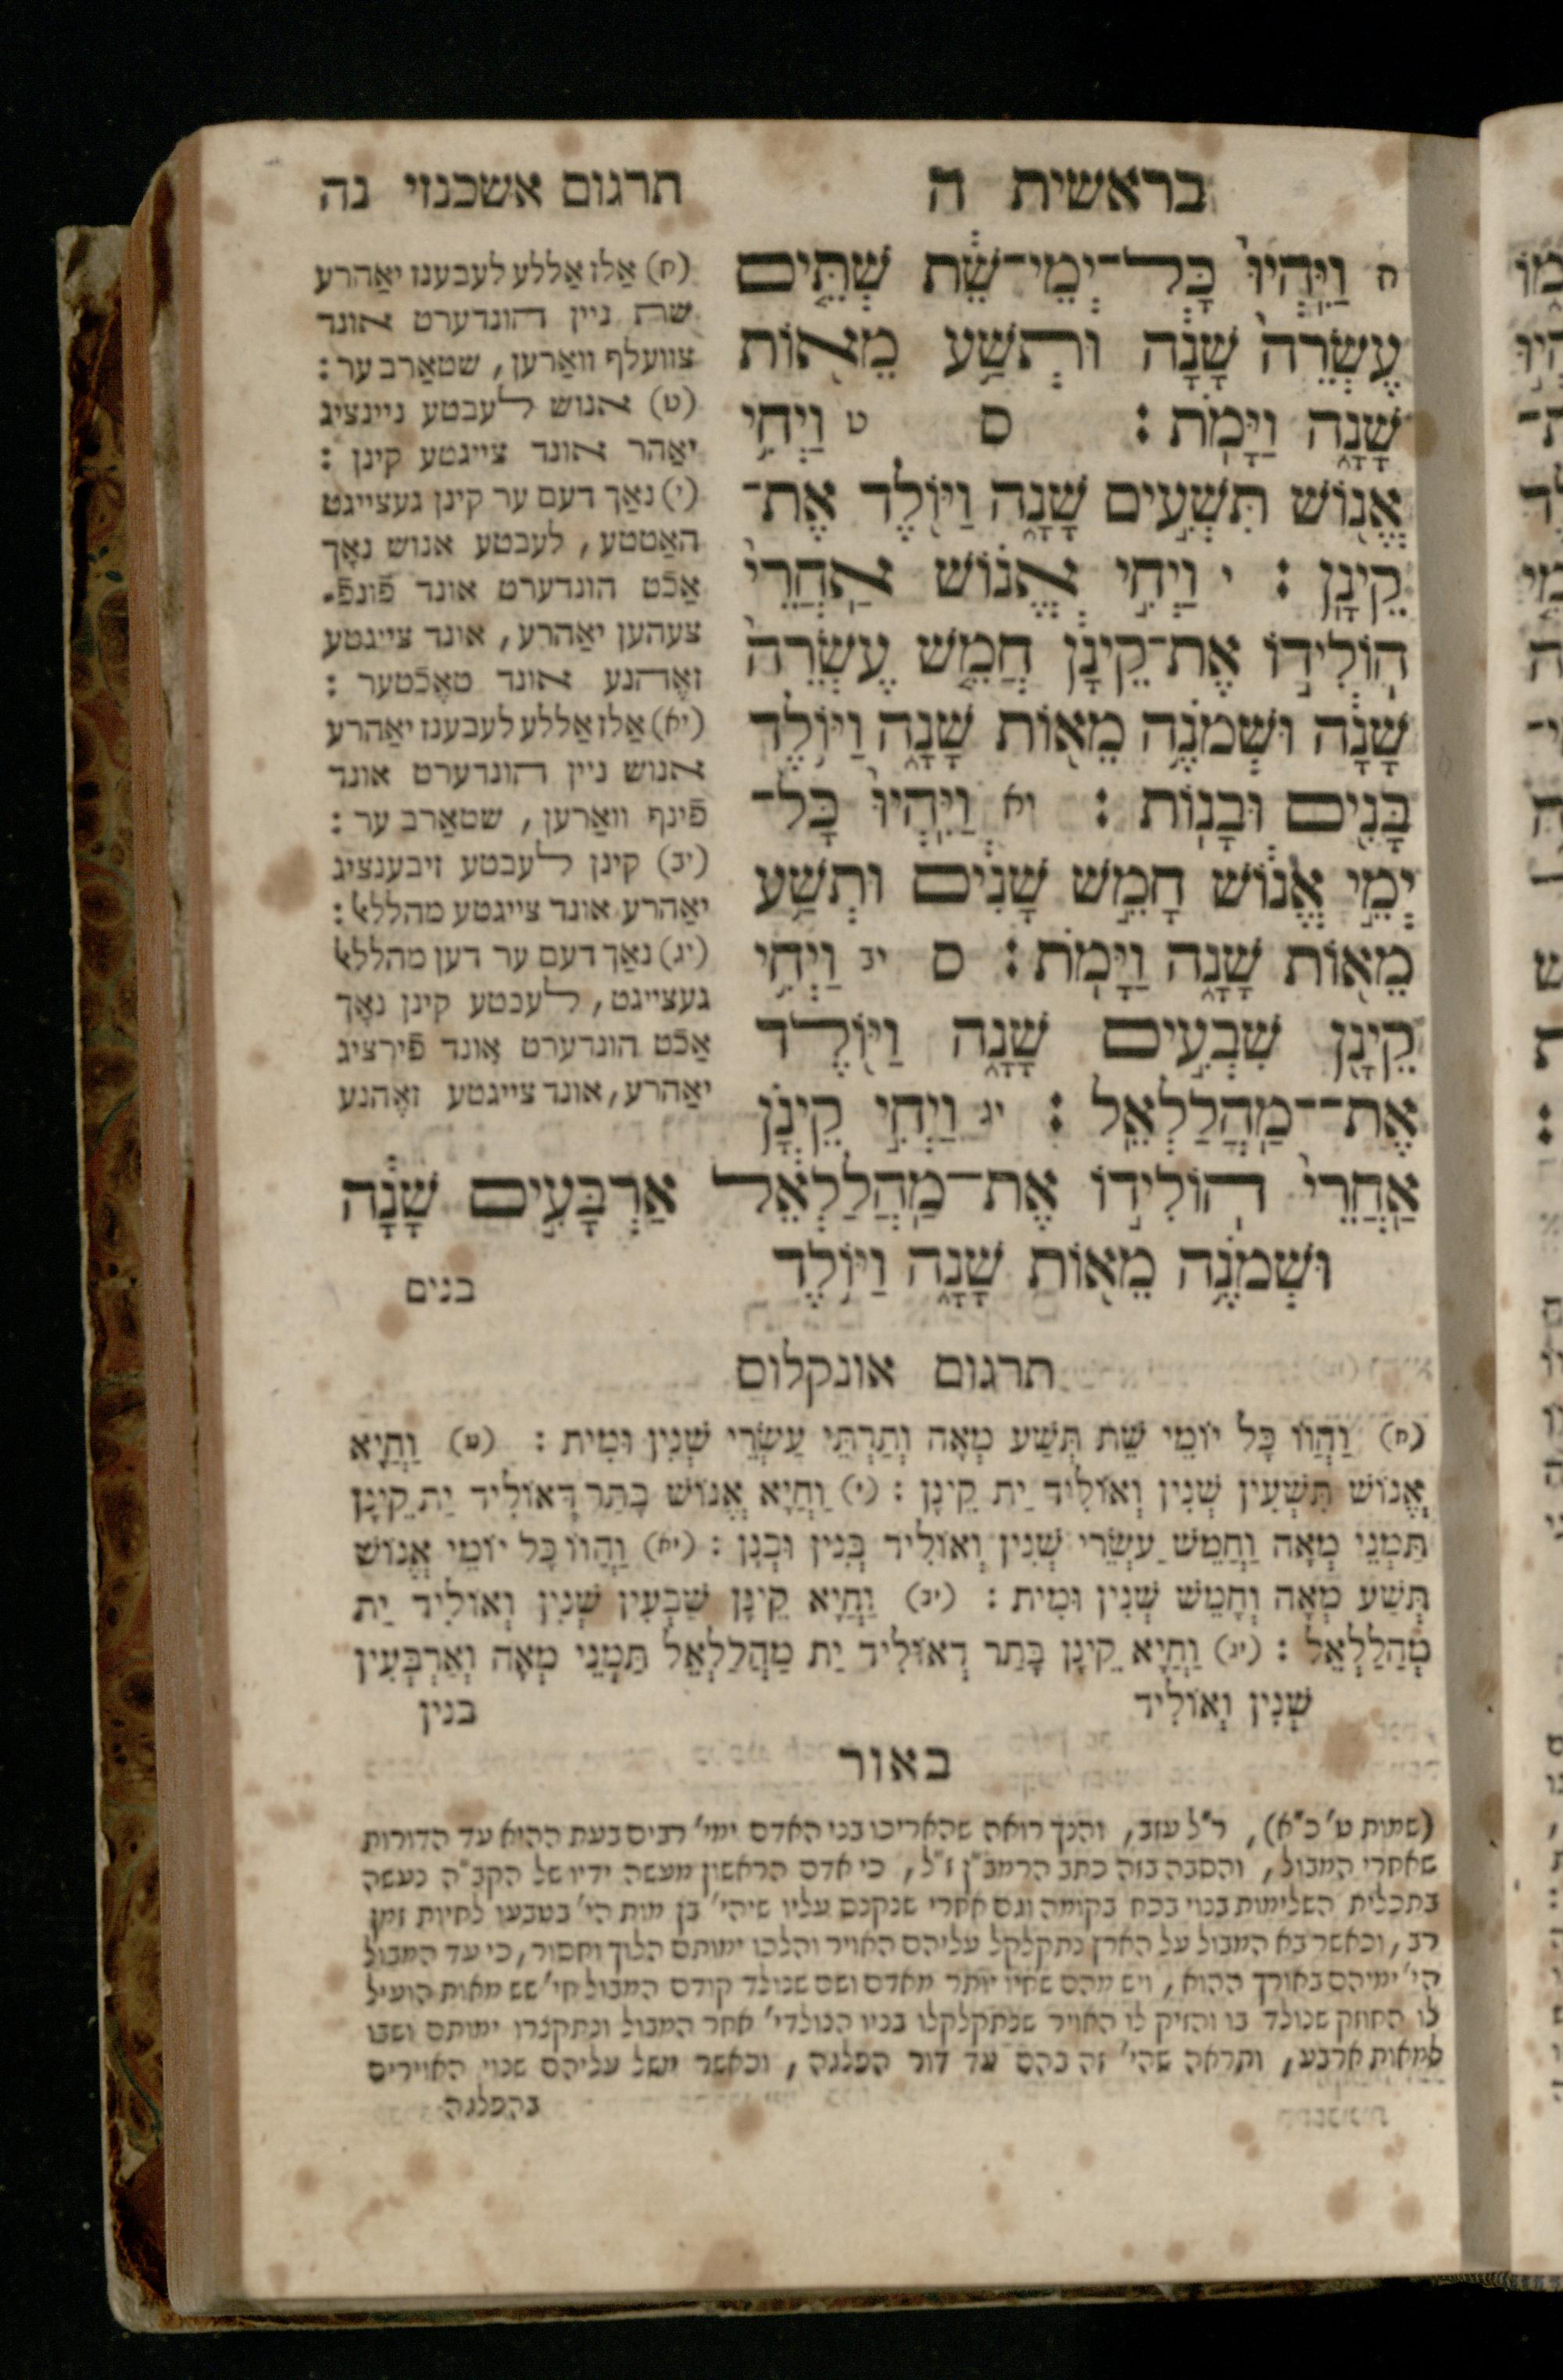 בראשית ה
תרגום אשכנזי נה
ח וַיִּֽהְיוּ֙ כׇּל־יְמֵי־שֵׁ֔ת שְׁתֵּ֤ים
עֶשְׂרֵה֙ שָׁנָ֔ה וּתְשַׁ֥ע מֵא֖וֹת
שָׁנָ֑ה וַיָּמֹֽת׃ ס ט וַֽיְחִ֥י
אֱנ֖וֹשׁ תִּשְׁעִ֣ים שָׁנָ֑ה וַיּ֖וֹלֶד אֶת־
קֵינָֽן׃ י וַֽיְחִ֣י אֱנ֗וֹשׁ אַֽחֲרֵי֙
הֽוֹלִיד֣וֹ אֶת־קֵינָ֔ן חֲמֵ֤שׁ עֶשְׂרֵה֙
שָׁנָ֔ה וּשְׁמֹנֶ֥ה מֵא֖וֹת שָׁנָ֑ה וַיּ֥וֹלֶד
בָּנִ֖ים וּבָנֽוֹת׃ יא וַיִּֽהְיוּ֙ כׇּל־
יְמֵ֣י אֱנ֔וֹשׁ חָמֵ֣שׁ שָׁנִ֔ים וּתְשַׁ֥ע
מֵא֖וֹת שָׁנָ֑ה וַיָּמֹֽת׃ ס יב וַֽיְחִ֥י
קֵינָ֖ן שִׁבְעִ֣ים שָׁנָ֑ה וַיּ֖וֹלֶד
אֶת־־מַֽהֲלַלְאֵֽל׃ יג וַיְחִ֣י קֵינָ֗ן
אַֽחֲרֵי֙ הֽוֹלִיד֣וֹ אֶת־מַֽהֲלַלְאֵ֔ל אַרְבָּעִ֣ים שָׁנָ֔ה
וּשְׁמֹנֶ֥ה מֵא֖וֹת שָׁנָ֑ה וַיּ֥וֹלֶד
בנים
(ח) אַלזאַללע לעבענז יאַהרע
שת ניין הונדערט אונד
צוועלף וואַרען, שטאַרב ער:
(ט) אנוש לעבטע ניינציג
יאַהר אונד צייגטע קינן:
(י) נאַך דעם ער קינן געצייגט
האַטטע, לעבטע אנוש נאָך
אַכֿט הונדערט אונד פֿונפֿ־
צעהען יאַהרע, אונד צייגטע
זאָהנע אונד טאָכֿטער:
(יא) אַלזאַללע לעבענז יאַהרע
אנוש ניין הונדערט אונד
פֿינף וואַרען, שטאַרב ער:
(יב) קינן לעבטע זיבענציג
יאַהרע אונד צייגטע מהללאל:
(יג) נאַך דעם ער דען מהללאל
געצייגט, לעבטע קינן נאָך
אַכֿט הונדערט אונד פֿירציג
יאַהרע, אונד צייגטע זאָהנע
תרגום אונקלוס
(ח) וַהֲווֹ כָּל יוֹמֵי שֵׁת תְּשַׁע מְאָה וְתַרְתֵּי עַשְׂרֵי שְׁנִין וּמִית: (ט) וַחֲיָא
אֱנוֹשׁ תִּשְׁעִין שְׁנִין וְאוֹלִיד יַת קֵינָן: (י) וַחֲיָא אֱנוֹשׁ בָּתַר דְּאוֹלִיד יַת קֵינָן
תַּמְנֵי מְאָה וַחֲמֵשׁ עַשְׂרֵי שְׁנִין וְאוֹלִיד בְּנִין וּבְנָן: (יא) וַהֲווֹ כָּל יוֹמֵי אֱנוֹשׁ
תְּשַׁע מְאָה וְחָמֵשׁ שְׁנִין וּמִית: (יב) וַחֲיָא קֵינָן שַׁבְעִין שְׁנִין וְאוֹלִיד יַת
מְהַלַלְאֵל: (יג) וַחֲיָא קֵינָן בָּתַר דְּאוֹלִיד יַת מַהֲלַלְאֵל תַּמְנֵי מְאָה וְאַרְבְּעִין
שְׁנִין וְאוֹלִיד
בנין
באור
(שמות ט' כ"א), ר"ל עזב, והנך רואה שהאריכו בני האדם ימי' רבים בעת ההוא עד הדורות
שאחרי המבול, והסבה בזה כתב הרמב"ן ז"ל, כי אדם הראשון מעשה ידיו של הקב"ה נעשה
בתכלית השלימות בנוי בכח בקומה וגם אחרי שנקנס עליו שיהי' בן מות הי' בטבעו לחיות זמן
רב, וכאשר בא המבול על הארץ נתקלקל עליהם האויר והלכו ימותם הלוך וחסור, כי עד המבול
הי' ימיהם באורך ההוא, ויש מהם שחיו יותר מאדם ושם שנולד קודם המבול חי' שש מאות הועיל
לו החוזק שנולד בו והזיק לו האויר שנתקלקלו בניו הנולדי' אחר המבול ונתקצרו ימותם ושבו
למאות ארבע, ותראה שהי' זה בהם עד דור הפלגה, וכאשר משל עליהם שנוי האוירים
בהפלגה